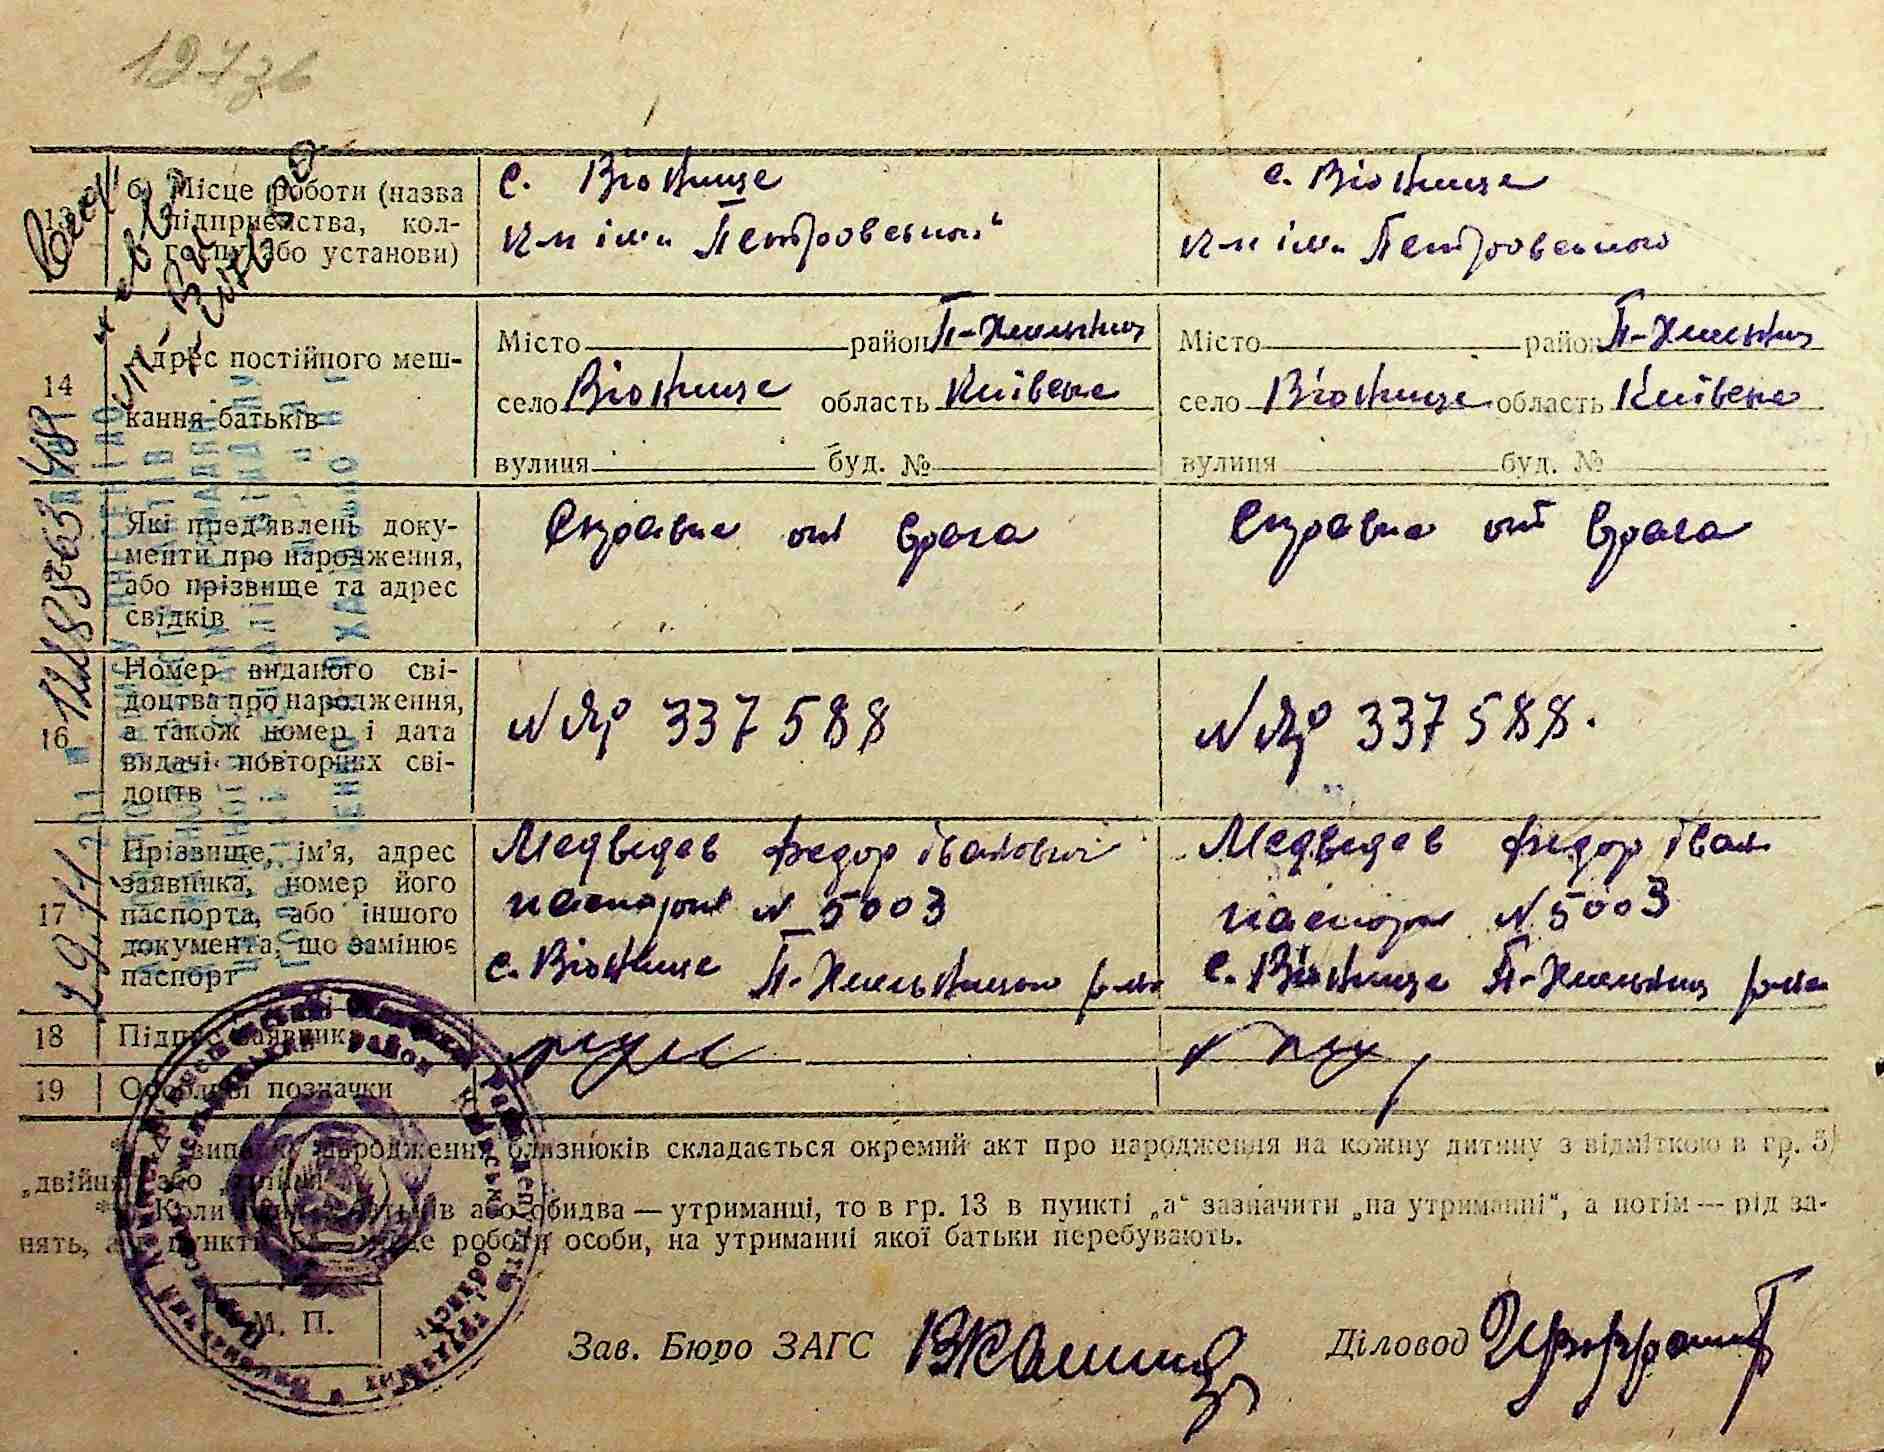 13
б) Місце роботи (назва
підприємства, кол-
госпу або установи)
с. Віюнище
к-п ім. Петровського
с. Віюнище
к-п ім. Петровського
14
Адрес постійного меш-
кання батьків
Місто район П-Хмельниц
село Віюнище область Київська
вулиця буд. №
Місто район П-Хмельниц
село Віюнище область Київська
вулиця буд. №
Які пред'явлені доку-
менти про народження,
або прізвище та адрес
свідків
Справка от врача
Справка от врача
16
Номер виданого сві-
доцтва про народження,
а також номер і дата
видачі повторних сві-
доцтв
N 337588
N 337588.
17
Прізвище, ім'я, адрес
заявника, номер його
паспорта, або іншого
документа, що замінює
паспорт
Медведев Федор Іванович
паспорт N 5003
с. Віюнище П-Хмельницького р-на
Медведев Федор Іван
паспорт N 5003
с. Віюнище П-Хмельниц р-на
18
Підпис заявника
19
Особливі позначки
* У випадку народження близнюків складається окремий акт про народження на кожну дитину з відміткою в гр. 5)
„двійня" або „трійня".
** Коли один з батьків або обидва — утриманці, то в гр. 13 в пункті „а" зазначити „на утриманні", а потім — рід за-
нять, а в пункті „б" — місце роботи особи, на утриманні якої батьки перебувають.
М. П.
Зав. Бюро ЗАГС
Діловод